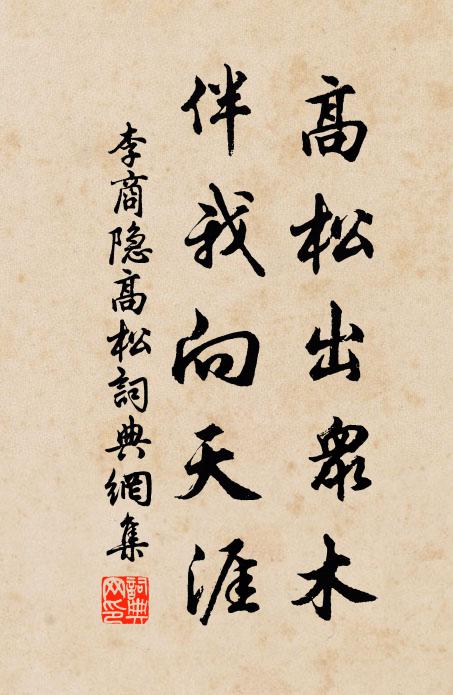 高松出眾木
伴我向天涯
李商隐高松詞典網集
詞典網印